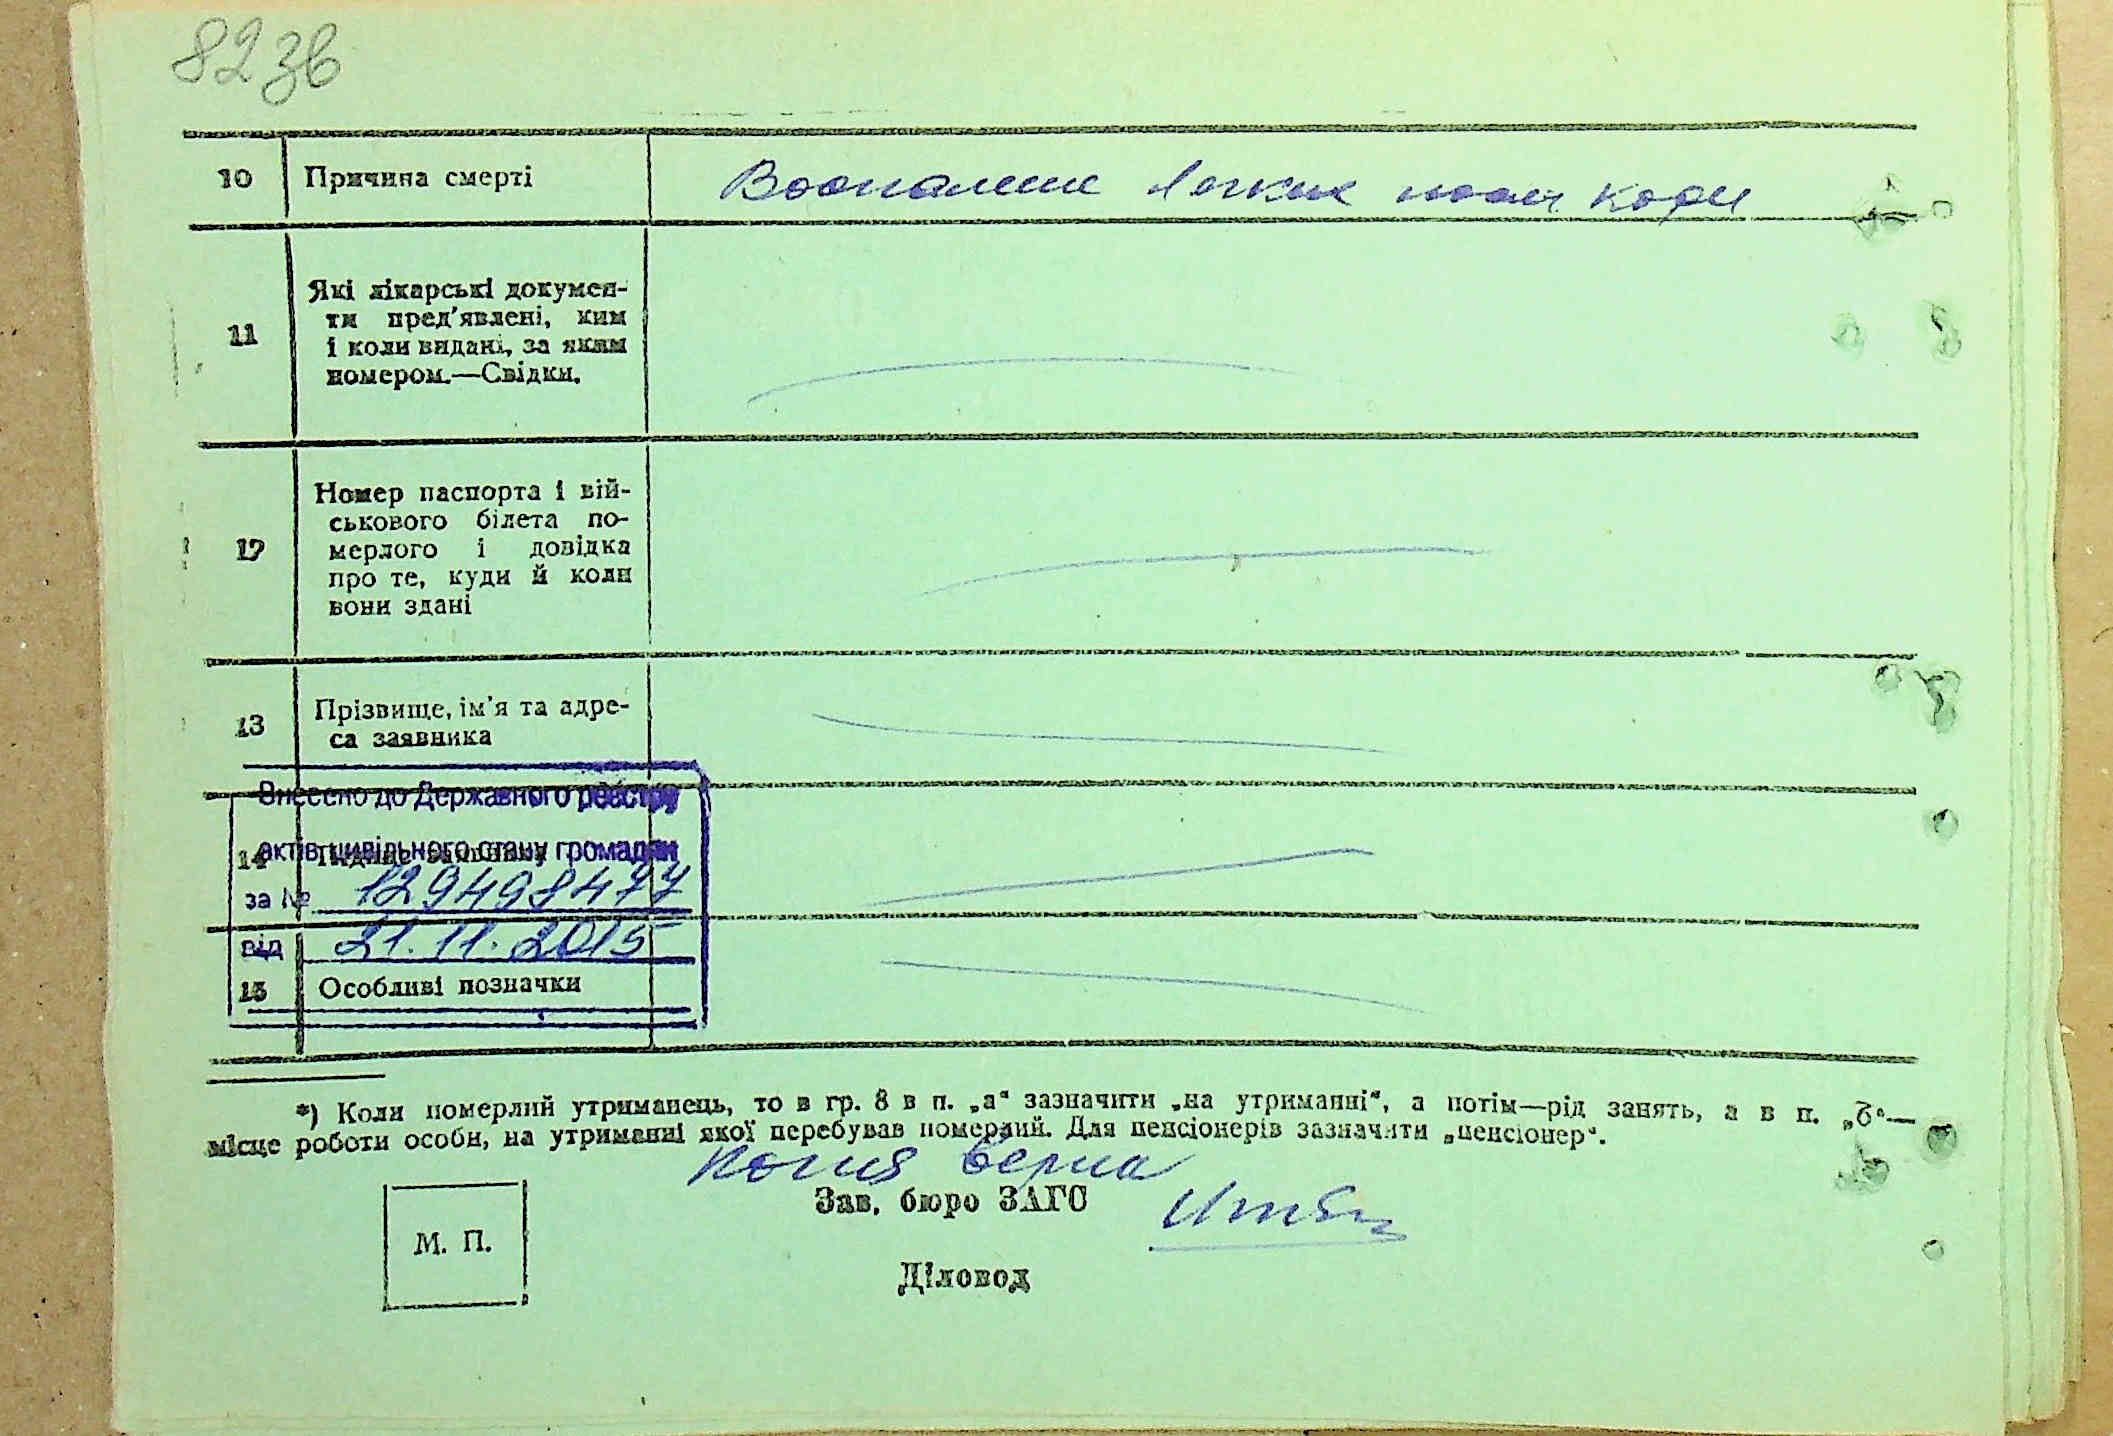 82зв
10 Причина смерті Воспаление легких после кори
11 Які лікарські докумен-
ти пред'явлені, ким
і коли видані, за яким
номером.—Свідки.
12 Номер паспорта і вій-
ськового білета по-
мерлого і довідка
про те, куди й коли
вони здані
13 Прізвище, ім'я та адре-
са заявника
Внесено до Державного реєстру
актів цивільного стану громадян
14
за № 129498477
від 21.11.2015
15 Особливі позначки
*) Коли померлий утриманець, то в гр. 8 в п. „а“ зазначити „на утриманні“, а потім—рід занять, а в п. „б“—
місце роботи особи, на утриманні якої перебував померлий. Для пенсіонерів зазначити „пенсіонер“.
Копия верна
Зав. бюро ЗАГС
М. П.
Діловод